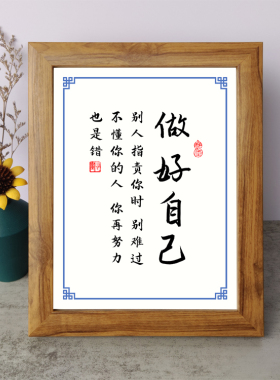 做好自己
别人指责你时 别难过
不懂你的人 你再努力
也是错